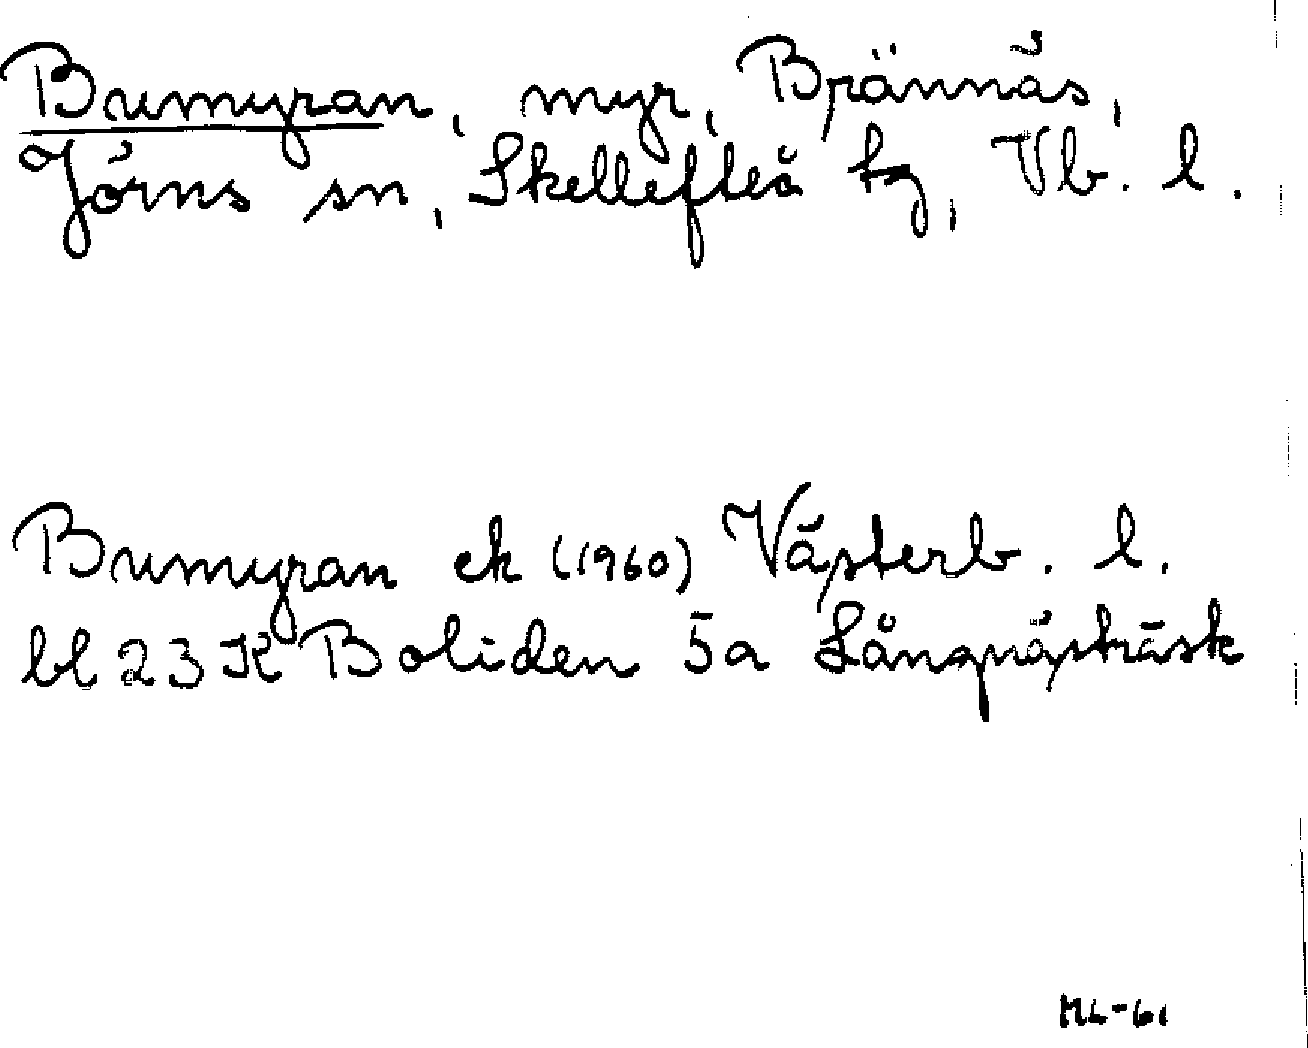 Bumyran, myr, Brännäs,
Jörns sn, Skellefteå tg, Vb. l.
Bumyran ek (1960) Västerb. l.
bl 23 K Boliden 5a Långnästräsk
ML-61